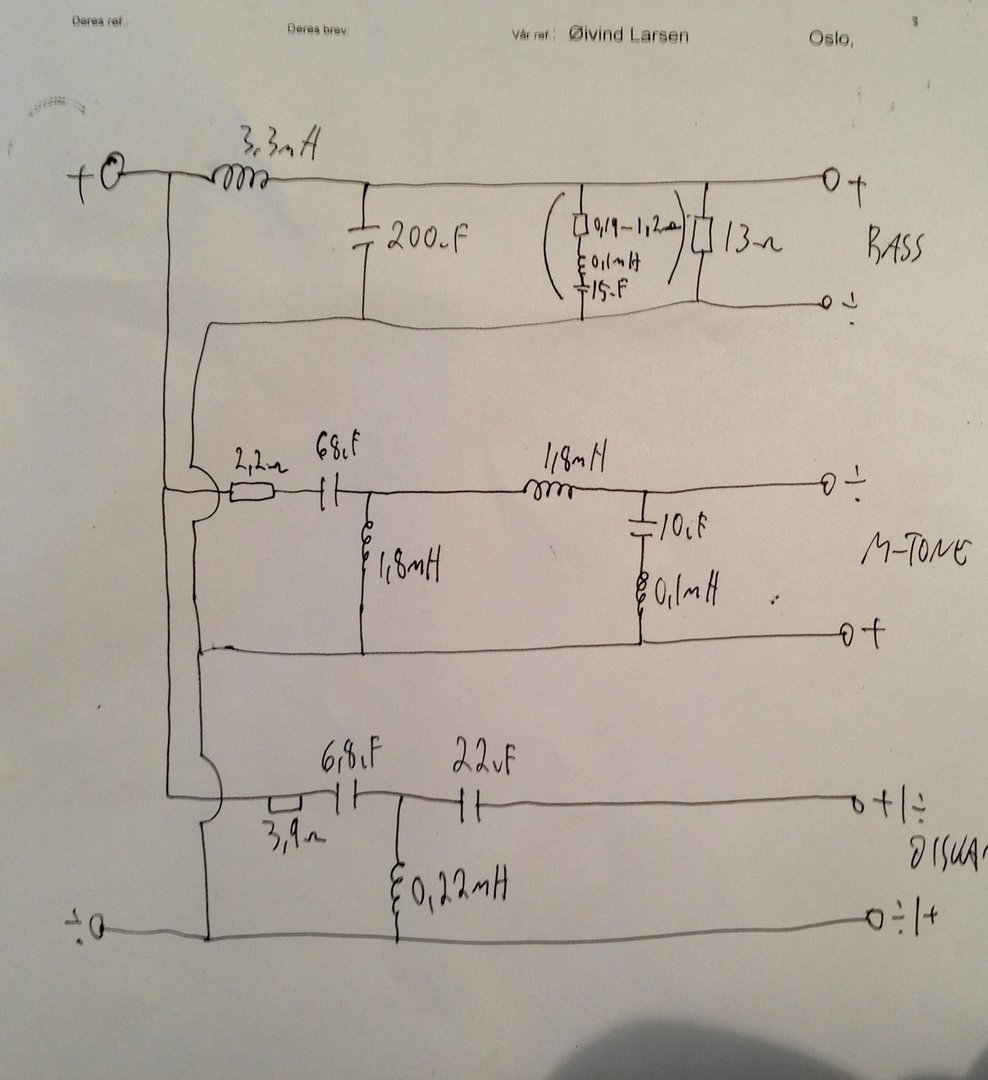 Deres ref.
Deres brev:
Vår ref.: Øivind Larsen
Oslo,
3,3mH
+
+
200uF
0,19-1,2Ω
0,1mH
15uF
13Ω
BASS
÷
2,2Ω
68uF
1,8mH
÷
1,8mH
10uF
0,1mH
M-TONE
+
6,8uF
22uF
+/÷
3,9Ω
0,22mH
÷
÷/+